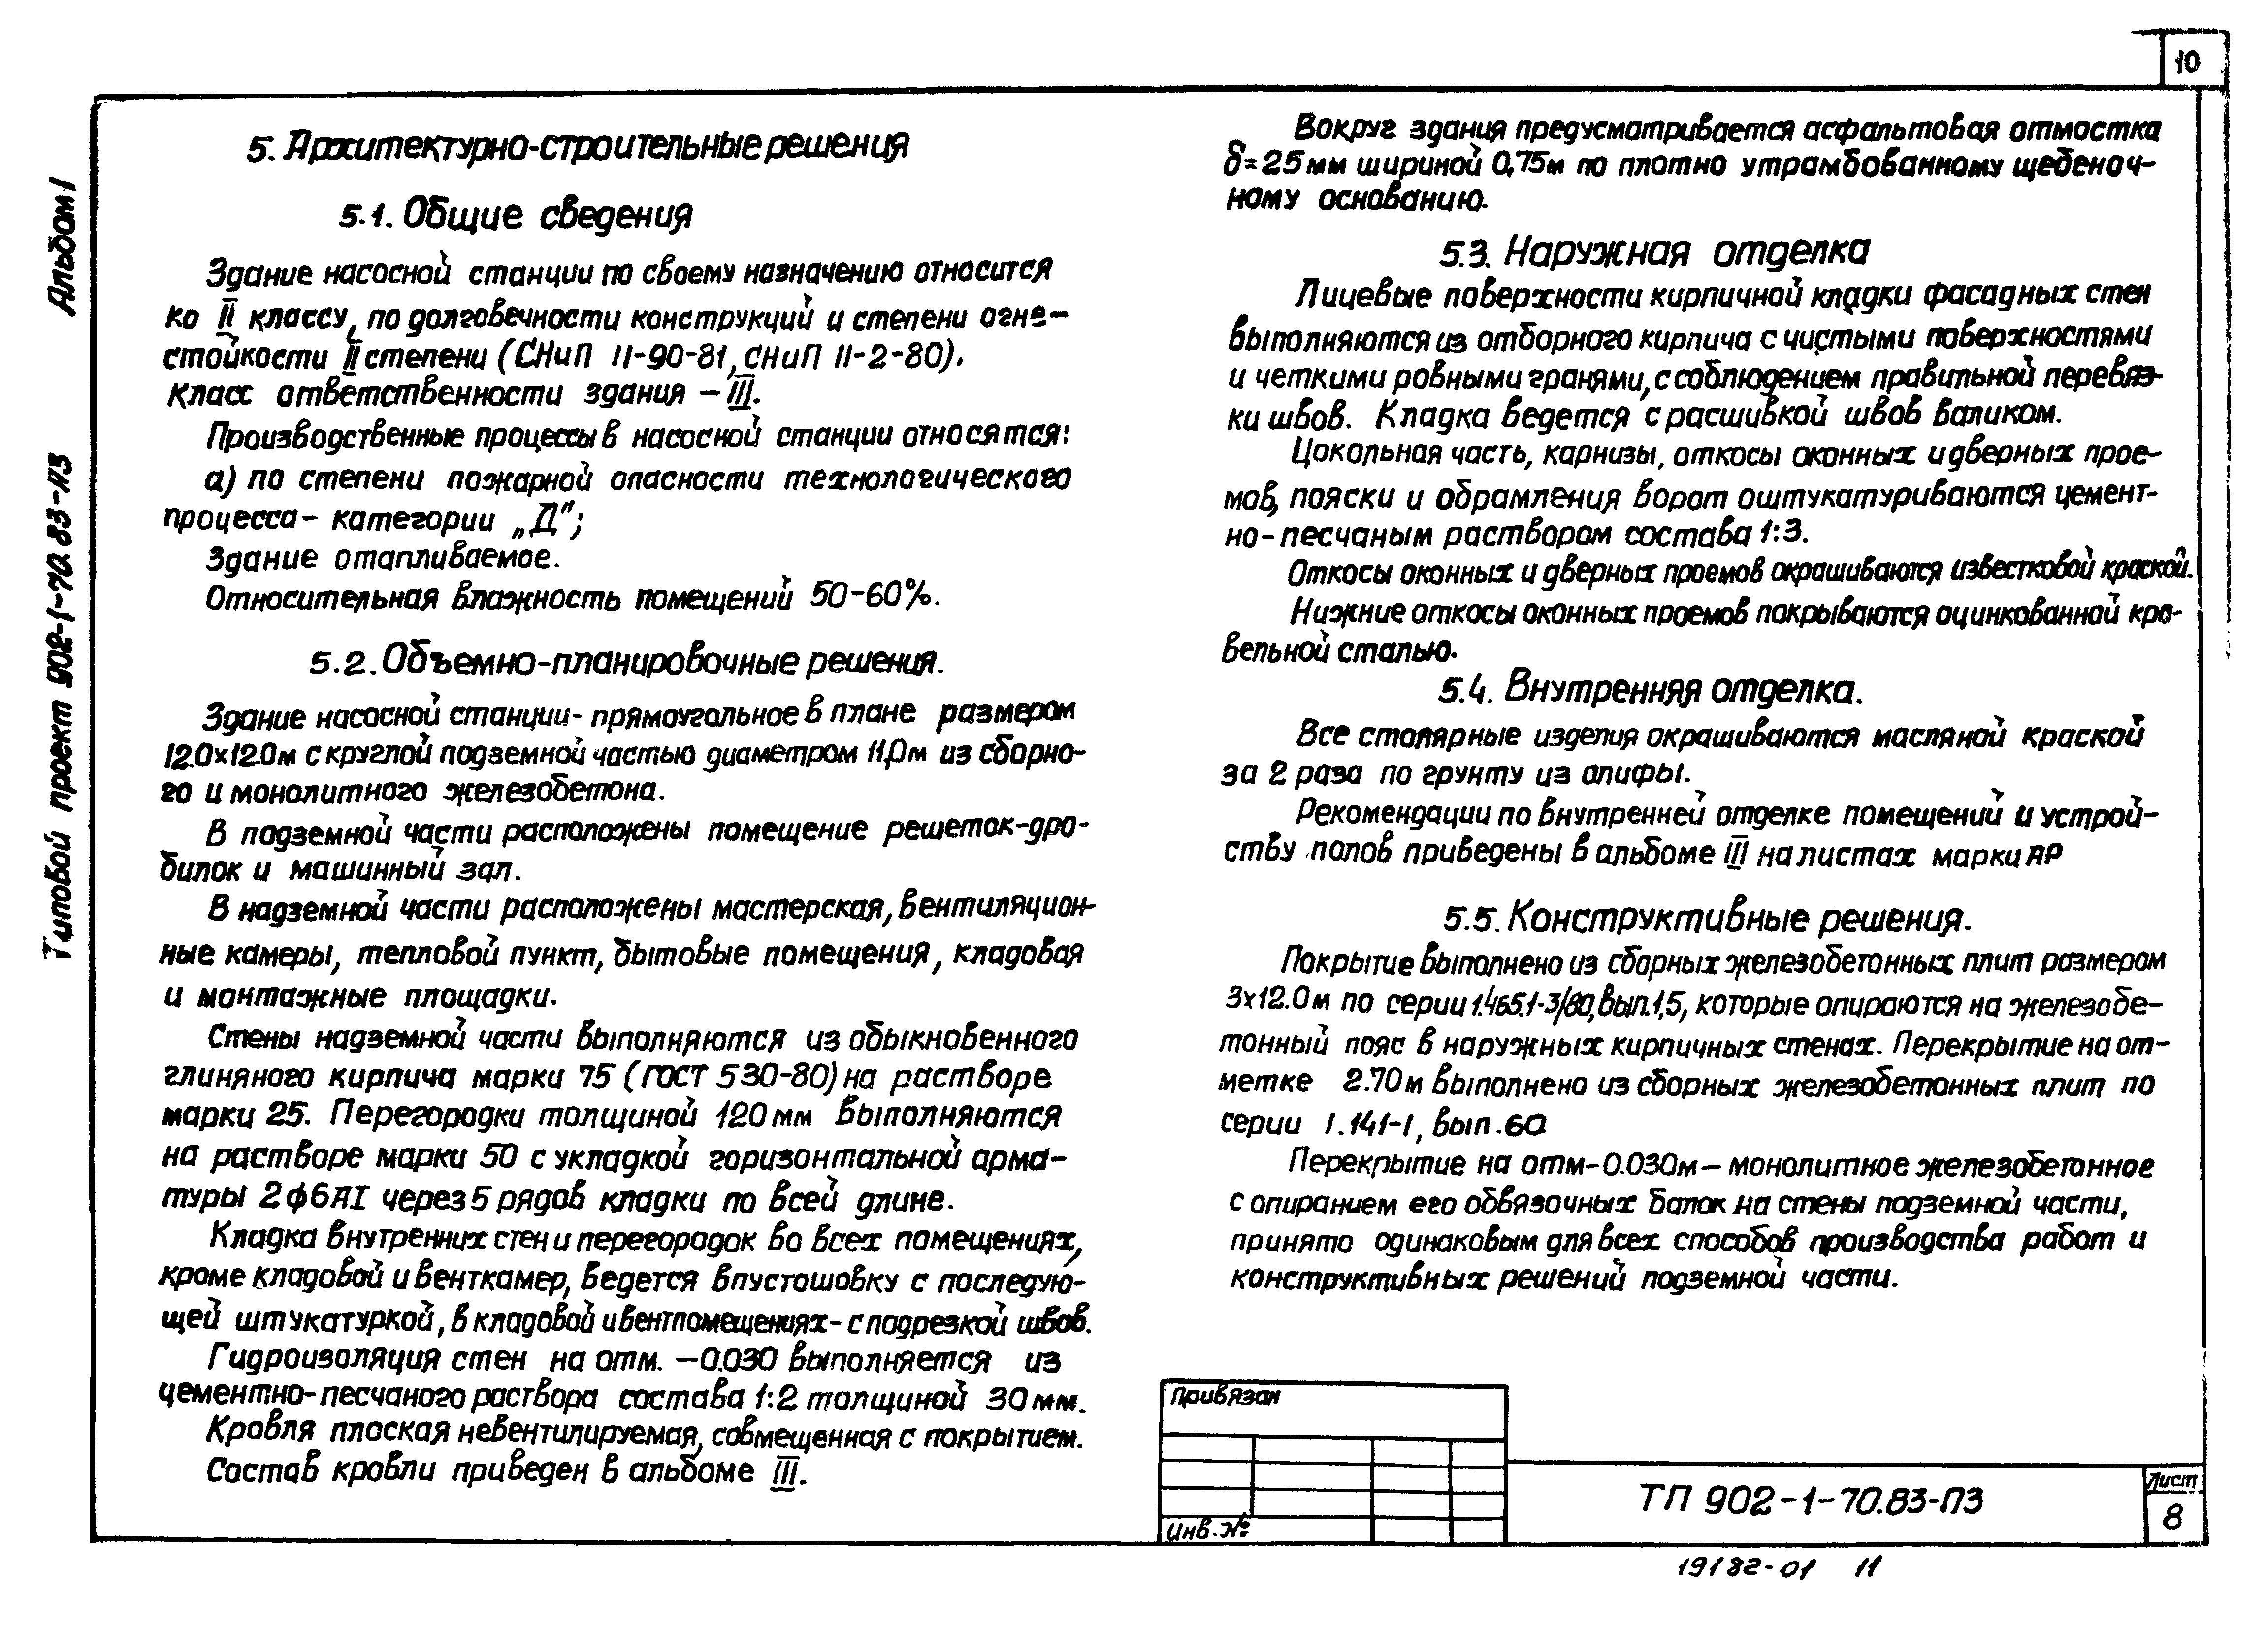 10
Альбом I
Типовой проект 902-1-70.83-ПЗ
5. Архитектурно-строительные решения
5.1. Общие сведения
Здание насосной станции по своему назначению относится
ко II классу, по долговечности конструкций и степени огне-
стойкости II степени (СНиП II-90-81, СНиП II-2-80).
Класс ответственности здания – III.
Производственные процессы в насосной станции относятся:
а) по степени пожарной опасности технологического
процесса – категории „Д“;
Здание отапливаемое.
Относительная влажность помещений 50-60%.
5.2. Объемно-планировочные решения.
Здание насосной станции - прямоугольное в плане размером
12.0х12.0м с круглой подземной частью диаметром 11,0м из сборно-
го и монолитного железобетона.
В подземной части расположены помещение решеток-дро-
билок и машинный зал.
В надземной части расположены мастерская, вентиляцион-
ные камеры, тепловой пункт, бытовые помещения, кладовая
и монтажные площадки.
Стены надземной части выполняются из обыкновенного
глиняного кирпича марки 75 (ГОСТ 530-80) на растворе
марки 25. Перегородки толщиной 120 мм выполняются
на растворе марки 50 с укладкой горизонтальной арма-
туры 2ф6АI через 5 рядов кладки по всей длине.
Кладка внутренних стен и перегородок во всех помещениях,
кроме кладовой и венткамер, ведется впустошовку с последую-
щей штукатуркой, в кладовой и вентпомещениях - с подрезкой швов.
Гидроизоляция стен на отм. –0.030 выполняется из
цементно-песчаного раствора состава 1:2 толщиной 30 мм.
Кровля плоская невентилируемая, совмещенная с покрытием.
Состав кровли приведен в альбоме III.
Вокруг здания предусматривается асфальтовая отмостка
δ=25мм шириной 0,75м по плотно утрамбованному щебеноч-
ному основанию.
5.3. Наружная отделка
Лицевые поверхности кирпичной кладки фасадных стен
выполняются из отборного кирпича с чистыми поверхностями
и четкими ровными гранями, с соблюдением правильной перевяз-
ки швов. Кладка ведется с расшивкой швов валиком.
Цокольная часть, карнизы, откосы оконных и дверных прое-
мов, пояски и обрамления ворот оштукатуриваются цемент-
но-песчаным раствором состава 1:3.
Откосы оконных и дверных проемов окрашиваются известковой краской.
Нижние откосы оконных проемов покрываются оцинкованной кро-
вельной сталью.
5.4. Внутренняя отделка.
Все столярные изделия окрашиваются масляной краской
за 2 раза по грунту из олифы.
Рекомендации по внутренней отделке помещений и устрой-
ству полов приведены в альбоме III на листах марки АР
5.5. Конструктивные решения.
Покрытие выполнено из сборных железобетонных плит размером
3х12.0м по серии 1.465.1-3/80, вып.1,5, которые опираются на железобе-
тонный пояс в наружных кирпичных стенах. Перекрытие на от-
метке 2.70м выполнено из сборных железобетонных плит по
серии 1.141-1, вып.60
Перекрытие на отм-0.030м – монолитное железобетонное
с опиранием его обвязочных балок на стены подземной части,
принято одинаковым для всех способов производства работ и
конструктивных решений подземной части.
Привязан
Инв.№
ТП 902-1-70.83-ПЗ
Лист
8
19182-01 11